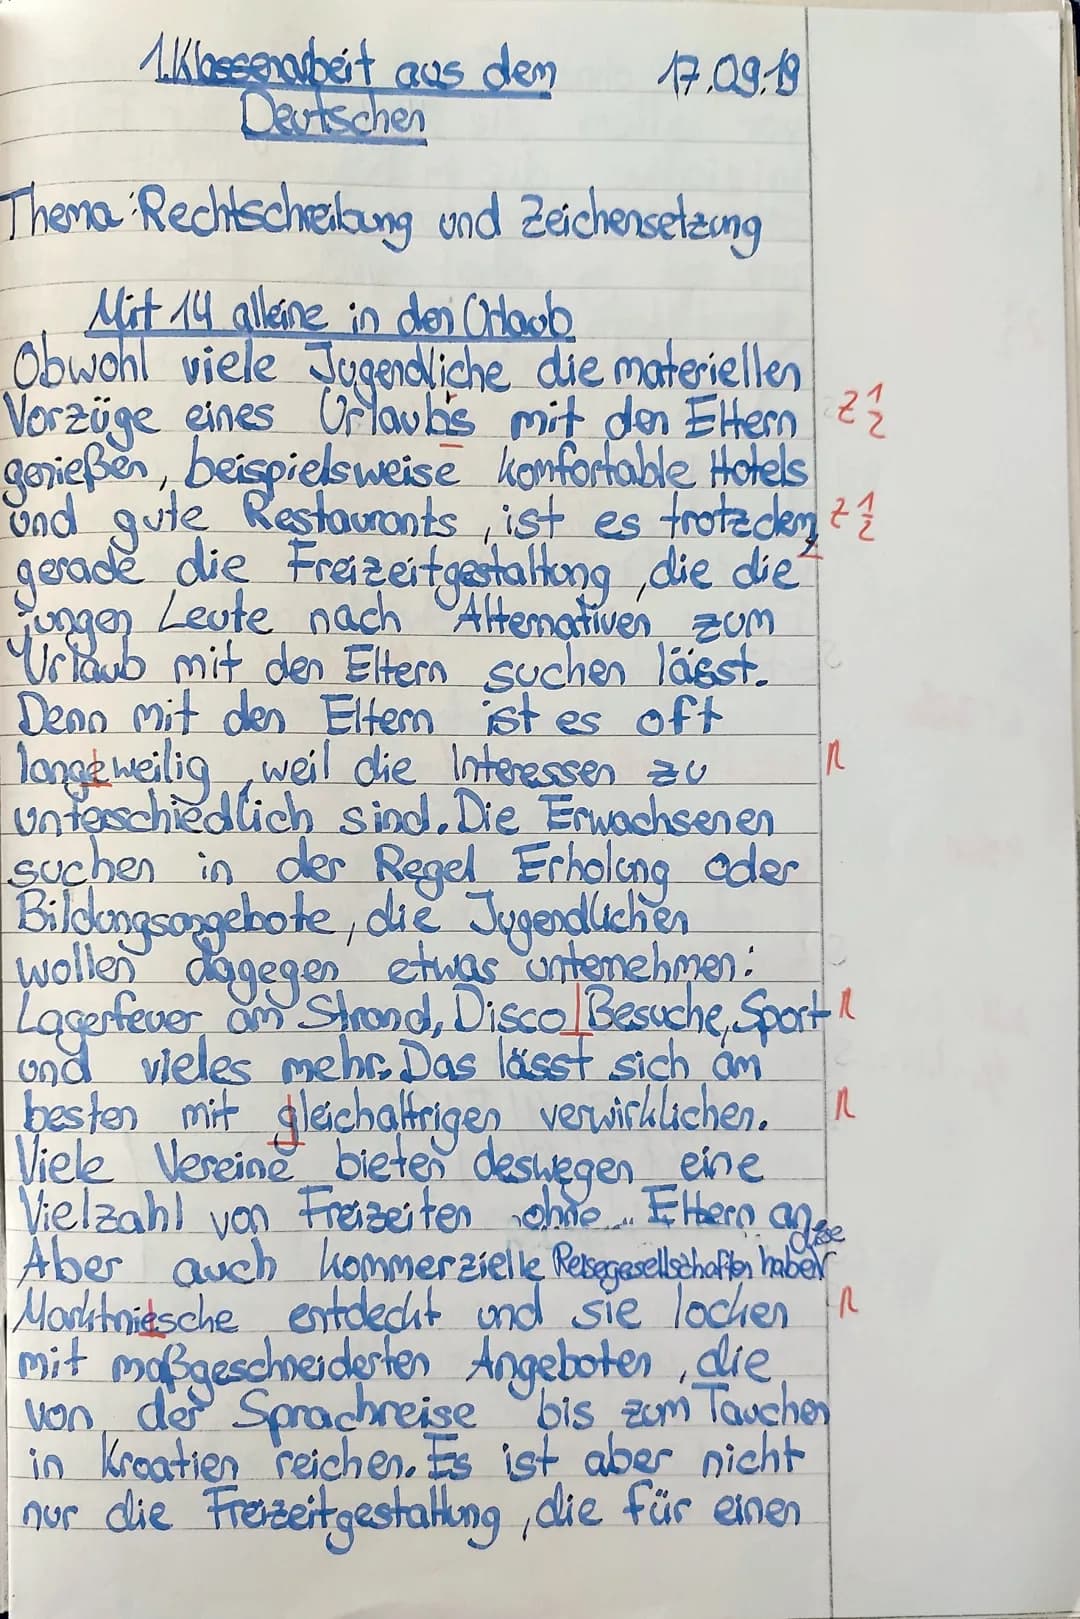 1. Klassenarbeit aus dem 17.09.19
Deutschen
Thema: Rechtschreibung und Zeichensetzung
Mit 14 alleine in den Urlaub
Obwohl viele Jugendliche die materiellen
Vorzüge eines Urlaub's mit den Eltern Z 1/2
genießen, beispielsweise komfortable Hotels
und gute Restaurants, ist es trotzdem, Z 1/2
gerade die Freizeitgestaltung, die die
jungen Leute nach Alternativen zum
Urlaub mit den Eltern suchen lässt.
Denn mit den Eltern ist es oft
langeweilig, weil die Interessen zu R
unterschiedlich sind. Die Erwachsenen
suchen in der Regel Erholung oder
Bildungsangebote, die Jugendlichen
wollen dagegen etwas unternehmen:
Lagerfeuer am Strand, Disco Besuche, Sport R
und vieles mehr. Das lässt sich am
besten mit gleichaltrigen verwirklichen. R
Viele Vereine bieten deswegen eine
Vielzahl von Freizeiten „ohne“ Eltern an.
Aber auch kommerzielle Reisegesellschaften haben diese
Marktniesche entdeckt und sie locken R
mit maßgeschneiderten Angeboten, die
von der Sprachreise bis zum Tauchen
in Kroatien reichen. Es ist aber nicht
nur die Freizeitgestaltung, die für einen